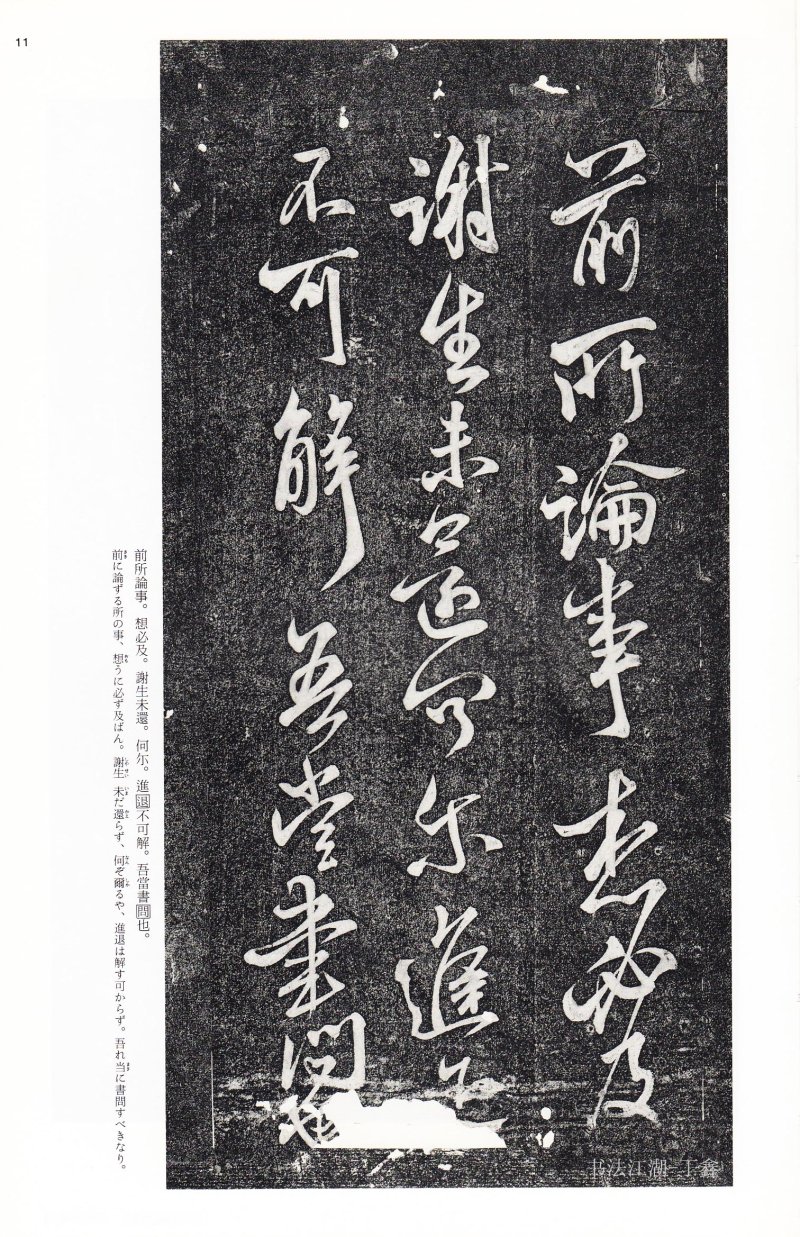 11
前所論事想必及
謝生未還何尓進
不可解吾當書問也
前所論事。想必及。謝生未還。何尓。進退不可解。吾當書問也。
前に論ずる所の事、想うに必ず及ばん。謝生 未だ還らず、何ぞ爾るや、進退は解す可からず。吾れ当に書問すべきなり。
书法江湖-丁鑫